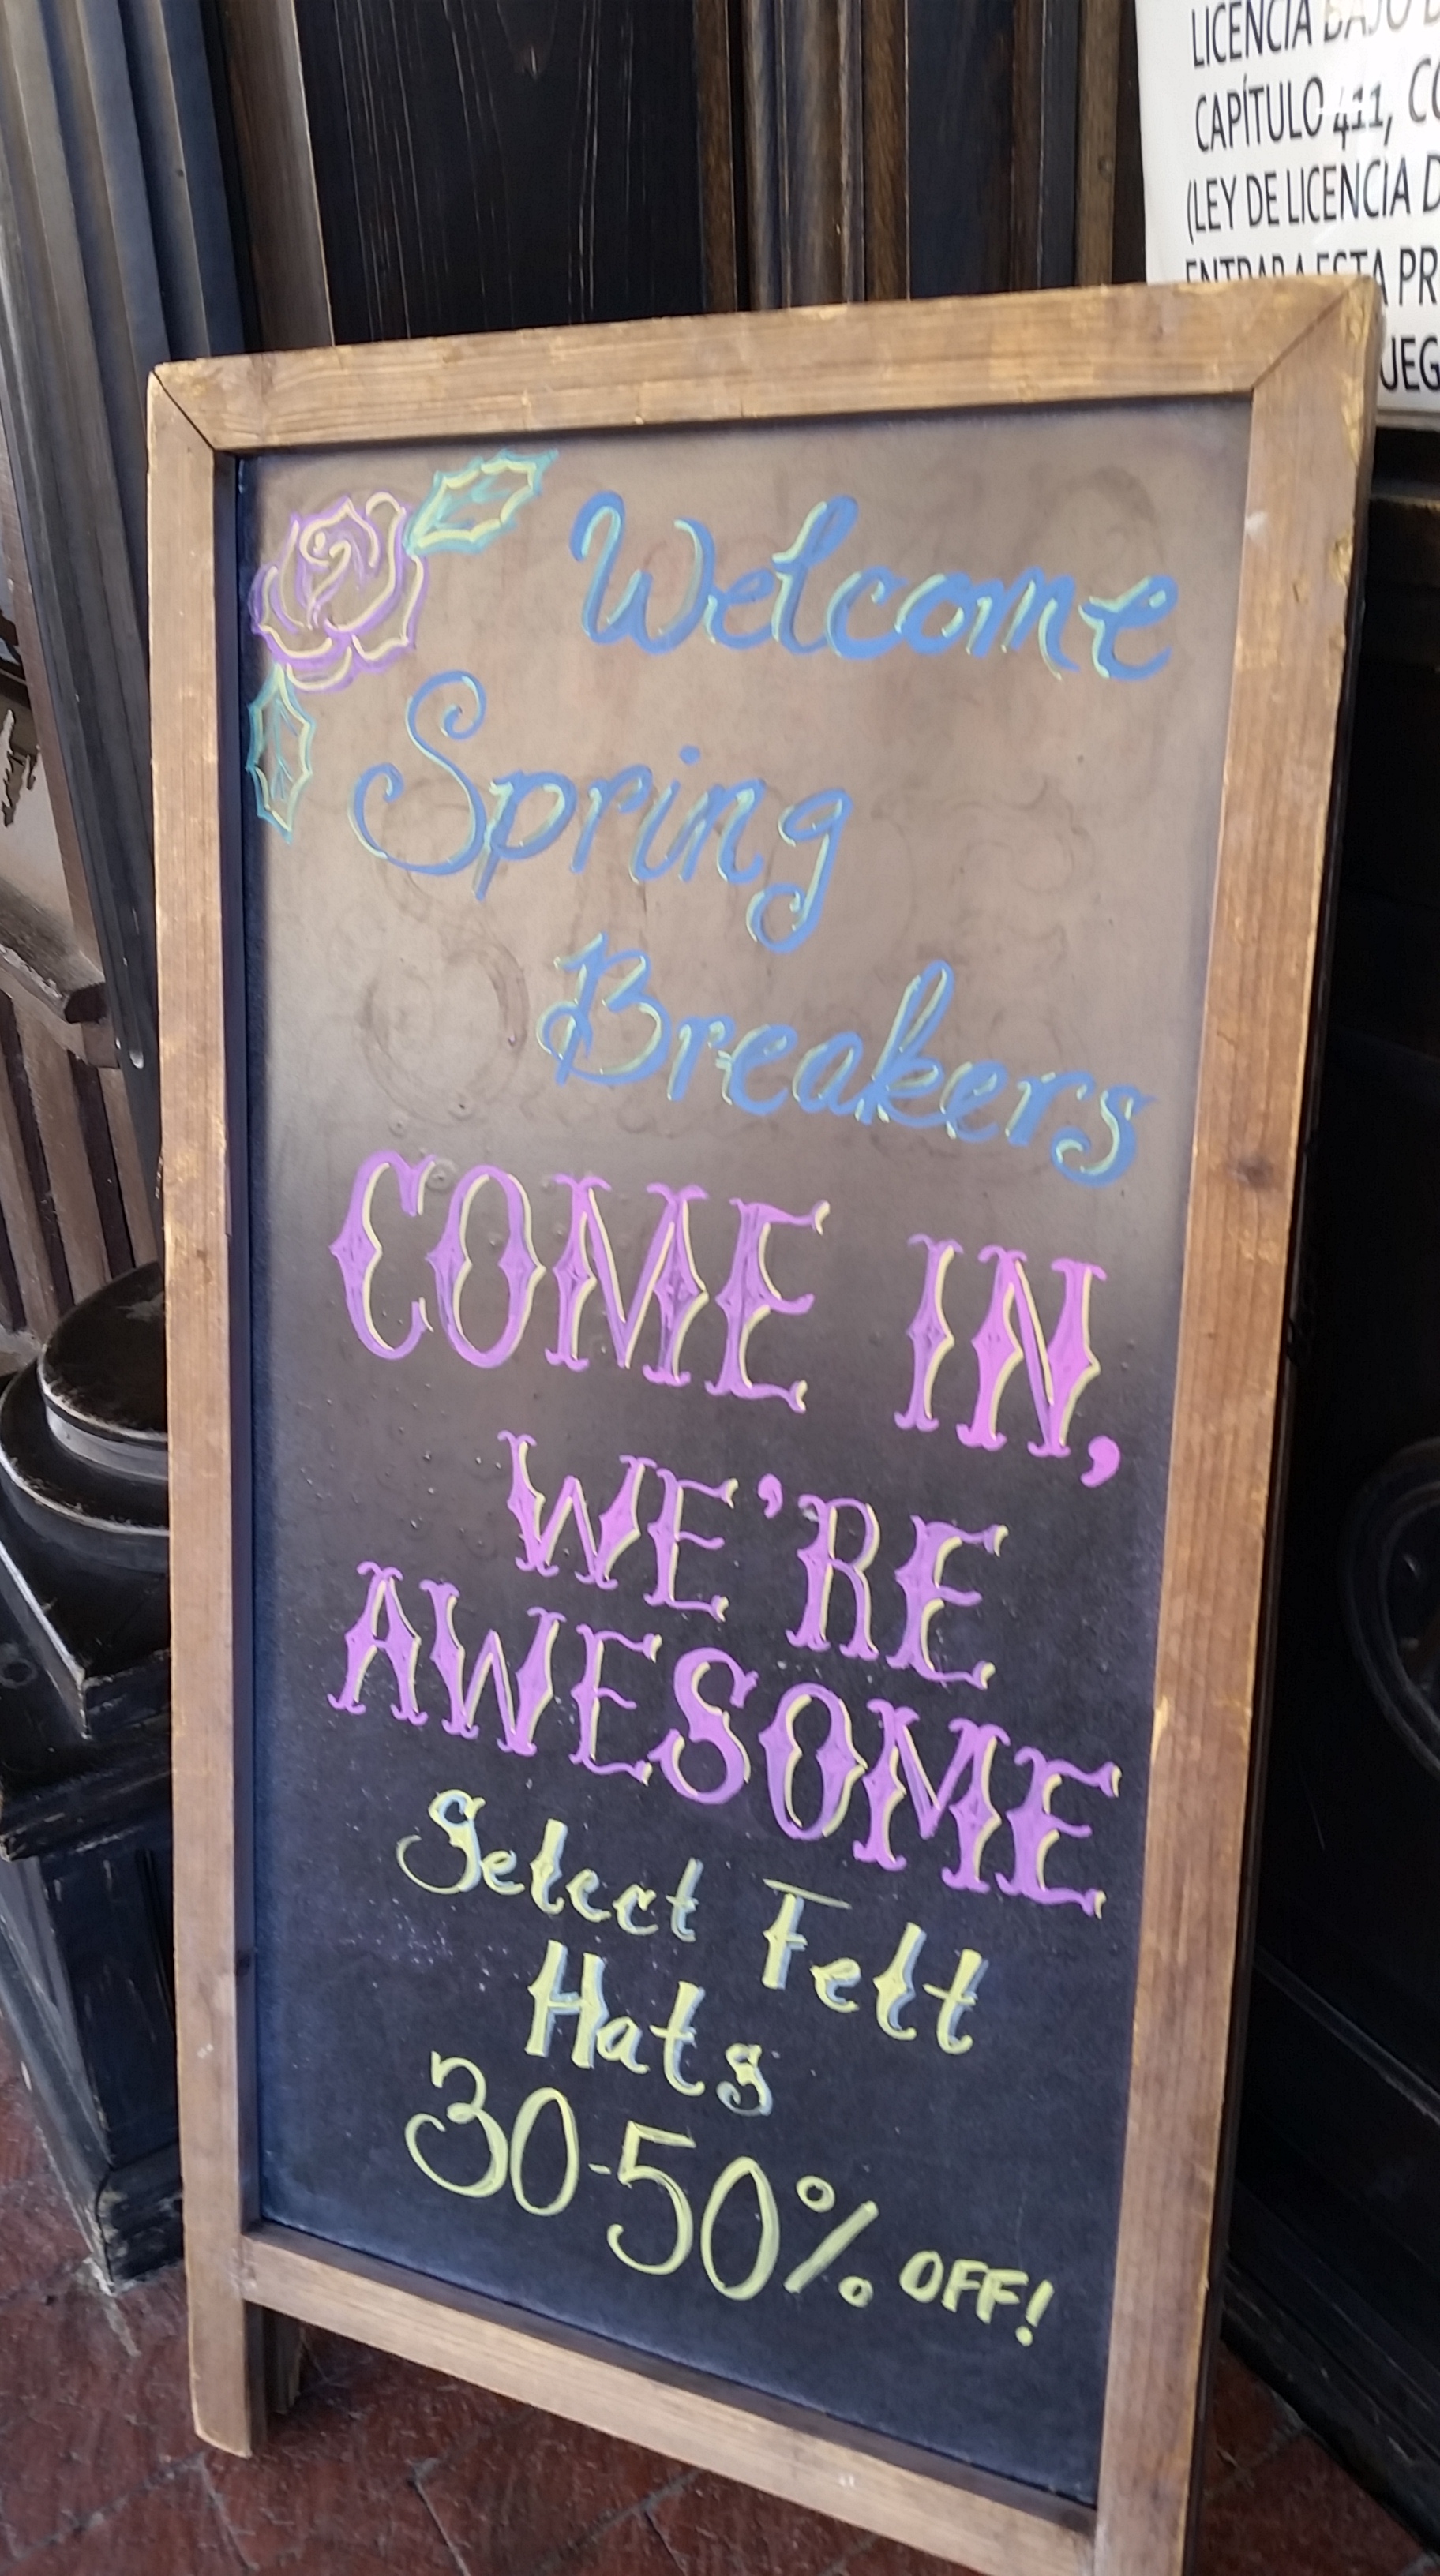 LICENCIA BAJO
CAPÍTULO 411,
(LEY DE LICENCIA
ENTRAR A ESTA
Welcome
Spring
Breakers
COME IN,
WE'RE
AWESOME
Select Felt
Hats
30-50% OFF!